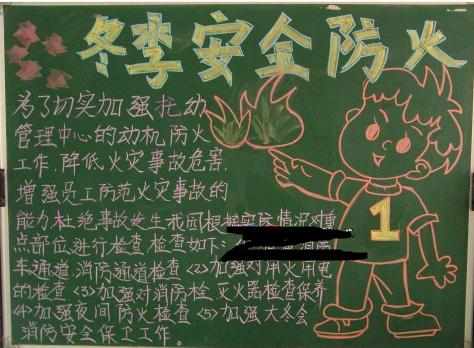 冬季安全防火
为了切实加强托幼
管理中心的动机防火
工作,降低火灾事故危害,
增强员工防范火灾事故的
能力杜绝事故发生我园根据实际情况对重
点部位进行检查检查如下:消防
车通道消防通道检查<2>加强对用火用电
的检查<3>加强对消防栓灭火器检查保养
<4>加强夜间防火检查<5>加强大冬会
消防安全保卫工作。
1